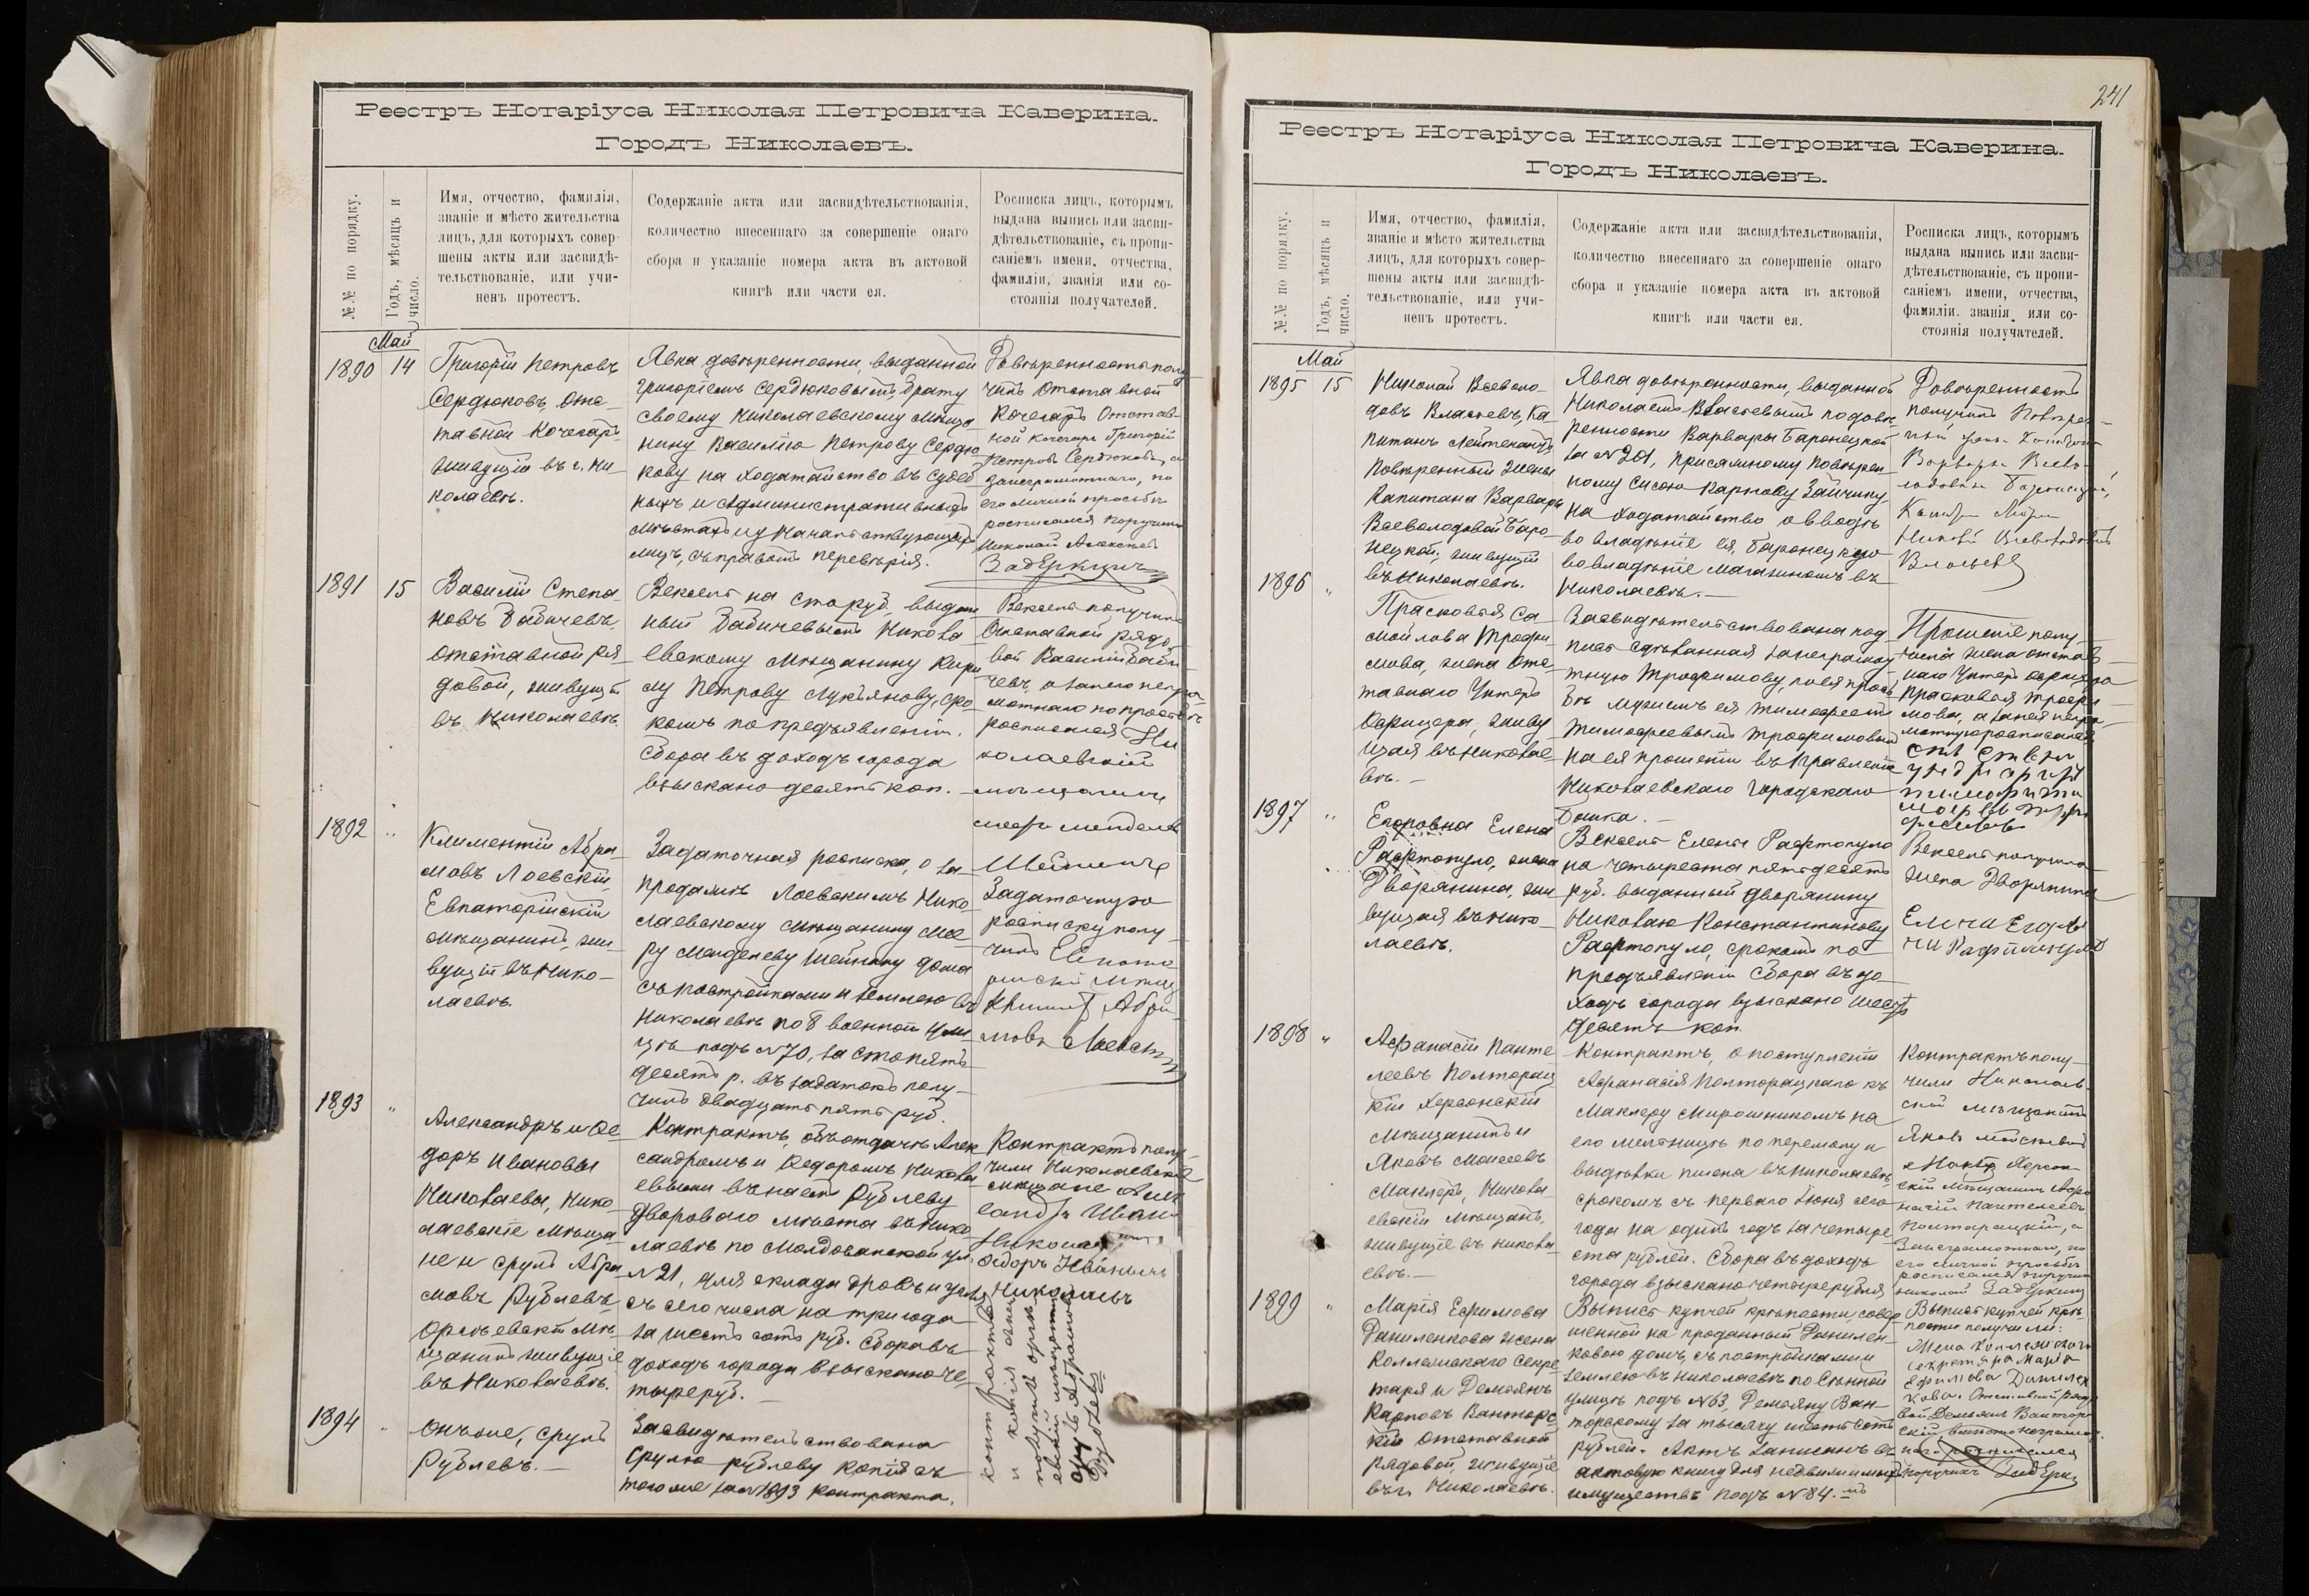 Реестръ Нотаріуса Николая Петровича Каверина.
Городъ Николаевъ.
№№ по порядку.
Годъ, мѣсяцъ и
число.
Имя, отчество, фамилія,
званіе и мѣсто жительства
лицъ, для которыхъ совер-
шены акты или засвидѣ-
тельствованіе, или учи-
ненъ протестъ.
Содержаніе акта или засвидѣтельствованія,
количество внесеннаго за совершеніе онаго
сбора и указаніе номера акта въ актовой
книгѣ или части ея.
Росписка лицъ, которымъ
выдана выпись или засви-
дѣтельствованіе, съ пропи-
саніемъ имени, отчества,
фамиліи, званія или со-
стоянія получателей.
Май
1890 14
Григорій Петровъ
Сердюковъ, отс-
тавной Кочегаръ
живущій въ г. Ни-
колаевѣ.
Явка довѣренности, выданной
Григоріемъ Сердюковымъ, брату
своему Николаевскому мѣща-
нину Василію Петрову Сердю-
кову на ходатайство въ судеб-
ныхъ и административныхъ
мѣстахъ и у начальствующихъ
лицъ, съ правомъ перевѣрія.
Довѣренность полу-
чилъ Отставной
Кочегаръ Отстав-
ной Кочегаръ Григорій
Петровъ Сердюковъ, а
за неграмотнаго, по
его личной просьбѣ
росписался поручикъ
Николай Алексѣевъ
Задеркинъ
1891 15
Василій Степа-
новъ Бабичевъ,
отставной ря-
довой, живущій
въ Николаевѣ.
Вексель на сто руб. выдан-
ный Бабичевымъ Никола-
евскому мѣщанину Кири-
лу Петрову Лукьянову, сро-
комъ по предъявленіи.
Сбора въ доходъ города
взыскано десять коп.
Вексель получилъ
Отставной рядо-
вой Василій Баби-
чевъ, а за него негра-
мотнаго по просьбѣ
росписался Ни-
колаевскій
мѣщанинъ
1892 "
Климентій Абра-
мовъ Лоевскій,
Евпаторійскій
мѣщанинъ, жи-
вущій въ Нико-
лаевѣ.
Задаточная росписка, о за-
продажѣ Лоевскимъ Нико-
лаевскому мѣщанину Мее-
ру Менделеву Шейнину дома
съ постройками и землею въ
Николаевѣ по 8 военной ули-
цѣ подъ №70, за сто пять-
десятъ р. въ задатокъ полу-
чилъ двадцать пять руб.
Задаточную
росписку полу-
чилъ
Абра-
мовъ Лоевскій
1893 "
Александръ и Ѳе-
доръ Ивановы
Николаевы, Нико-
лаевскіе мѣща-
не и Сруль Абра-
мовъ Рублевъ,
Оргѣевскій мѣ-
щанинъ живущіе
въ Николаевѣ.
Контрактъ, объ отдачѣ Алек-
сандромъ и Ѳедоромъ Никола-
евыми въ наемъ Рублеву
дворового мѣста въ Нико-
лаевѣ по Молдованской ул.
№21, для склада дровъ и угля,
съ сего числа на три года
за шесть сотъ руб. Сбора въ
доходъ города взыскано че-
тыре руб.
Контрактъ полу-
чили Николаевскіе
мѣщане
Иван
Никола
Федоръ Иванычъ
Николаевъ
1894 "
Онъ же, Сруль
Рублевъ.
Засвидѣтельствована
Срулю Рублеву копія съ
того же за №1893 контракта.
контрактъ
и копія
получилъ оргѣ-
евскій мѣщанинъ
Сруль Абрамовъ
Рублевъ
241
Реестръ Нотаріуса Николая Петровича Каверина.
Городъ Николаевъ.
№№ по порядку.
Годъ, мѣсяцъ и
число.
Имя, отчество, фамилія,
званіе и мѣсто жительства
лицъ, для которыхъ совер-
шены акты или засвидѣ-
тельствованіе, или учи-
ненъ протестъ.
Содержаніе акта или засвидѣтельствованія,
количество внесеннаго за совершеніе онаго
сбора и указаніе номера акта въ актовой
книгѣ или части ея.
Росписка лицъ, которымъ
выдана выпись или засви-
дѣтельствованіе, съ пропи-
саніемъ имени, отчества,
фамиліи, званія или со-
стоянія получателей.
Май
1895 15
Николай Всеволо-
довъ Властьевъ, Ка-
питанъ Лейтенантъ
повѣренный жены
Капитана Варвары
Всеволодовой Баро-
нецкой, живущій
въ Николаевѣ.
Явка довѣренности, выданной
Николаемъ Властьевымъ по довѣ-
ренности Варвары Баронецкой
за №201, присяжному повѣрен-
ному Сысою Карпову Зайчику
на ходатайство о вводѣ
во владѣніе ея, Баронецкую
во владѣніе магазиномъ въ
Николаевѣ.
Довѣренность
получилъ повѣрен-
ный жены
Варвары Всево-
лодовны Баронецкой,
Николай Всеволодовъ
Властьевъ
1896 "
Прасковья Са-
мойлова Трофи-
мова, жена отс-
тавнаго Унтеръ
Офицера, живу-
щая въ Николае-
вѣ.
Засвидѣтельствована под-
пись сдѣланная за неграмо-
тную Трофимову, по ея прось-
бѣ мужемъ ея Тимофеемъ
Тимофеевымъ Трофимовымъ
на ея прошеніи въ Правленіе
Николаевскаго Городскаго
Банка.
Прошеніе полу-
чила жена отстав-
наго Унтеръ Офицера
Прасковья Трофи-
мова, а за нея негра-
мотную росписался
1897 "
Егоровна Елена
Рафтопуло, жена
Дворянина, жи-
вущая въ Нико-
лаевѣ.
Вексель Елены Рафтопуло
на четыреста пятьдесятъ
руб. выданный дворянину
Николаю Константинову
Рафтопуло, срокомъ по
предъявленіи Сбора въ до-
ходъ города взыскано шесть
десятъ коп.
Вексель получила
жена Дворянина
1898 "
Афанасій Панте-
леевъ Полторац-
кій Херсонскій
мѣщанинъ и
Яковъ Моисеевъ
Маклеръ, Никола-
евскій мѣщанъ,
живущіе въ Никола-
евѣ.
Контрактъ, о поступленіи
Афанасія Полторацкаго къ
Маклеру Мирошникомъ на
его мельницѣ по перемолу и
выдѣлки пшена въ Николаевѣ,
срокомъ съ перваго Іюня сего
года на одинъ годъ за четыре-
ста рублей. Сбора въ доходъ
города взыскано четыре рубля
Контрактъ полу-
чили Николаев-
скій мѣщанинъ
Яковъ
Херсон-
скій мѣщанинъ Афа-
насій Пантелеевъ
Полторацкій, а
за неграмотнаго, по
его личной просьбѣ
росписался поручикъ
Николай Задеркинъ
1899 "
Марія Ефимова
Даниленкова жена
Коллежскаго Секре-
таря и Демьянъ
Карповъ Вантор-
скій отставной
рядовой, живущіе
въ г. Николаевѣ.
Выпись купчей крѣпости, совер-
шенной на проданный Данилен-
ковою домъ, съ постройками и
землею въ Николаевѣ по Сѣнной
улицѣ подъ №63, Демьяну Ван-
торскому за тысячу шесть сотъ
рублей. Актъ записанъ въ
актовую книгу для недвижимыхъ
имуществъ подъ №84.
Выпись купчей крѣ-
пости получили:
Жена Коллежскаго
Секретаря Марія
Ефимова Данилен-
кова. Отставной рядо-
вой Демьянъ Вантор-
скій
росписался
поручикъ Задеркинъ